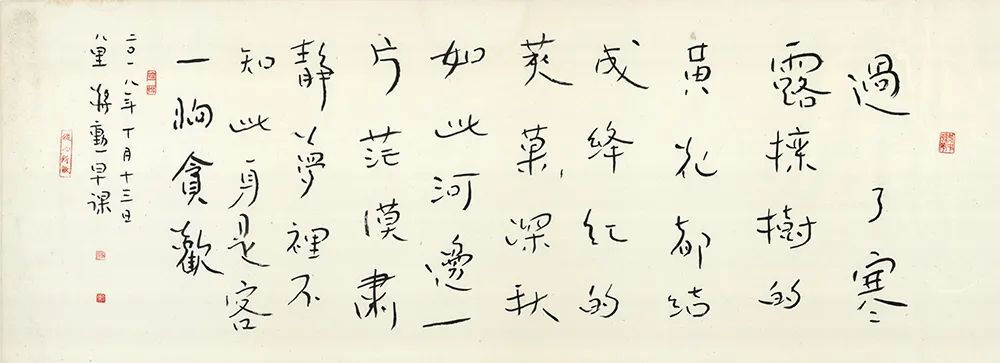 過了寒
露欒樹的
黃花都結
成絳紅的
莢菓,深秋
如此河邊一
片茫漠肅
靜夢裡不
知此身是客
一晌貪歡
二〇一八年十月十三日
八里 蔣勳早課
從心所欲